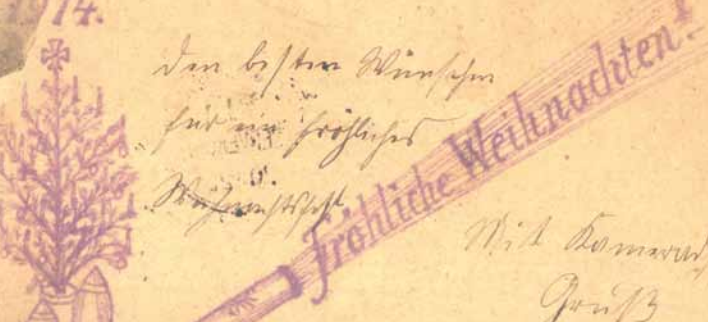 14.
den besten Wünschen
für ein fröhliches
Weihnachtsfest.
Fröhliche Weihnachten!
Mit Kamerad.
Gruß